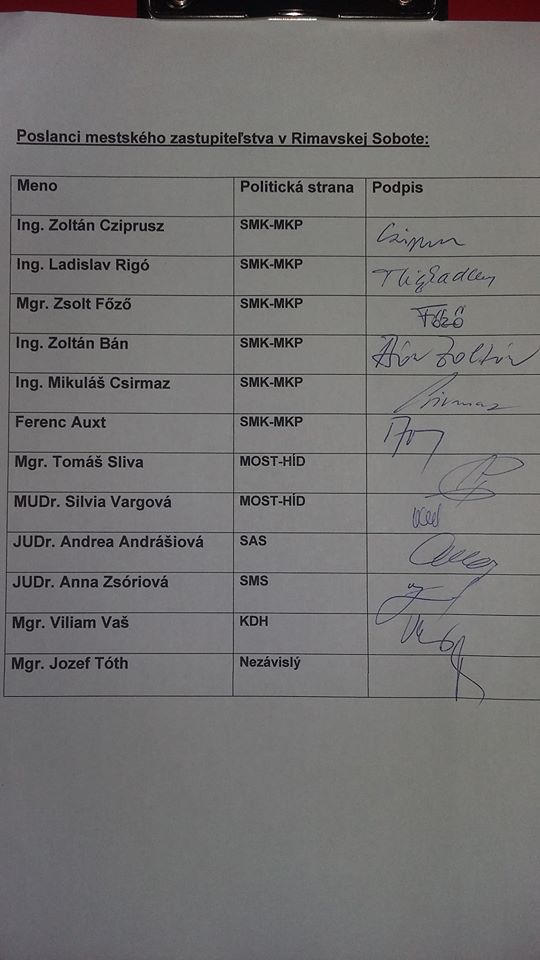 Poslanci mestského zastupiteľstva v Rimavskej Sobote:
Meno Politická strana Podpis
Ing. Zoltán Cziprusz SMK-MKP
Ing. Ladislav Rigó SMK-MKP
Mgr. Zsolt Főző SMK-MKP Főző
Ing. Zoltán Bán SMK-MKP Bán Zoltán
Ing. Mikuláš Csirmaz SMK-MKP Csirmaz
Ferenc Auxt SMK-MKP
Mgr. Tomáš Sliva MOST-HÍD
MUDr. Silvia Vargová MOST-HÍD
JUDr. Andrea Andrášiová SAS
JUDr. Anna Zsóriová SMS
Mgr. Viliam Vaš KDH
Mgr. Jozef Tóth Nezávislý